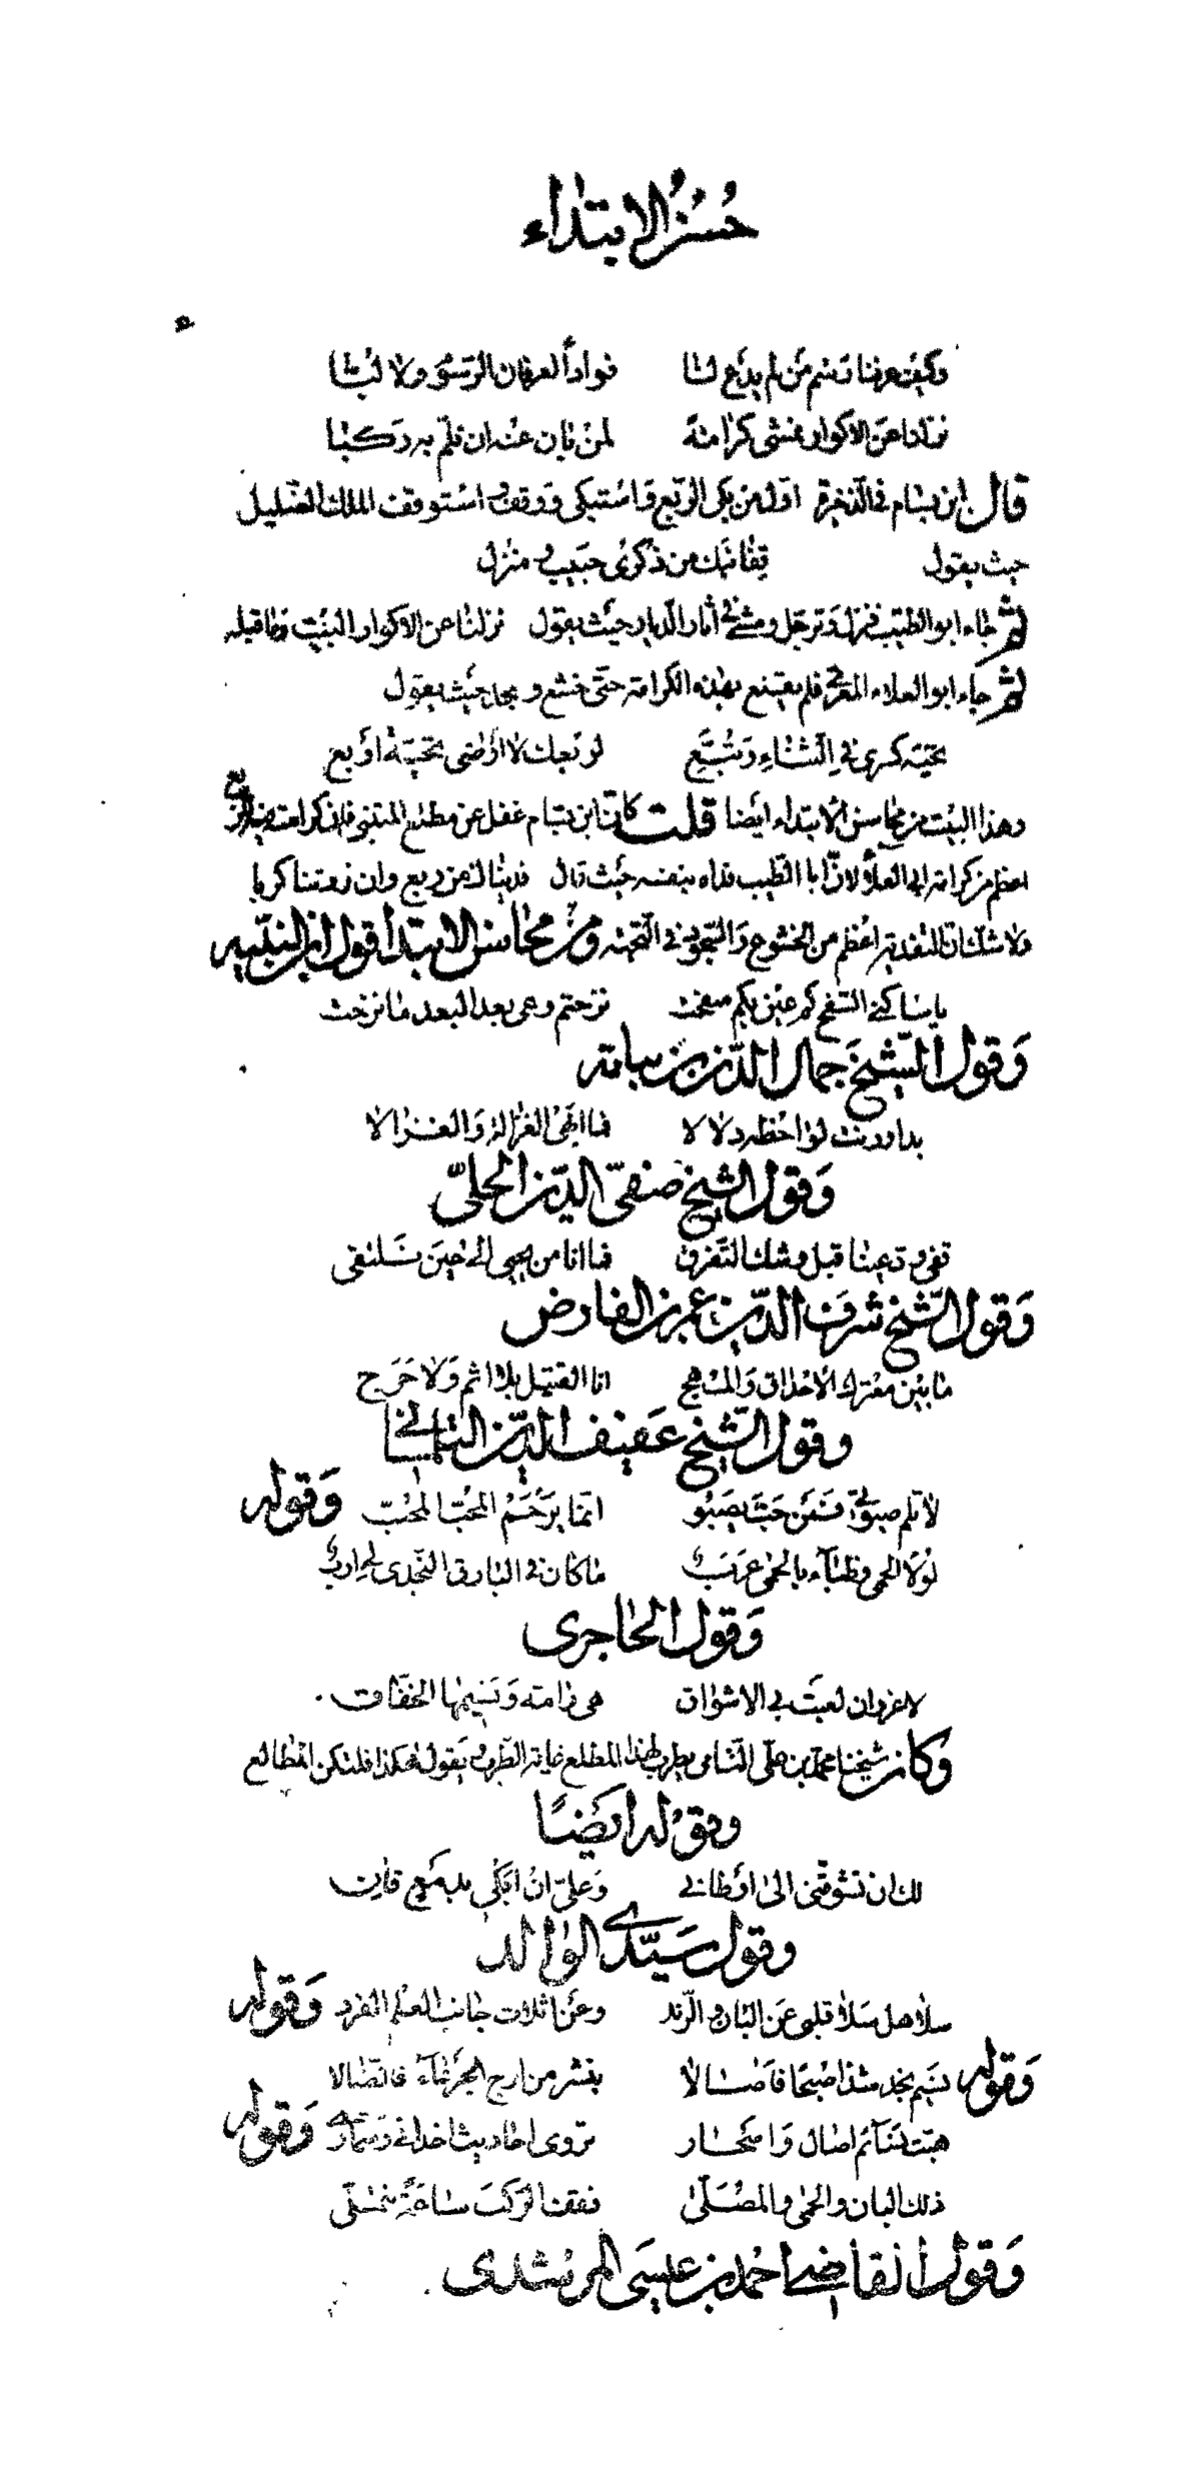 حُسْنُ الابتداء
وكيف عرفنا رسم من لم يدع لنا فواداً لعرفان الرسوم ولا لبّا
نزلنا عن الاكوار نمشي كرامةً لمن بان عنه ان نلمّ به ركبا
قال ابن بسام في الذخيرة اول من بكى الربع واستبكى ووقف واستوقف الملك الضليل
حيث يقول قفا نبك من ذكرى حبيب ومنزل
ثم جاء ابو الطيب فنزل وترجل ومشى في آثار الديار حيث يقول نزلنا عن الاكوار البيت وما قبله
ثم جاء ابو العلاء المعري فلم يقتنع بهذه الكرامة حتى خشع وسجد حيث يقول
تحية كسرى في الثناء وتبّع لربعك لا أرضى تحية أربع
وهذا البيت من محاسن الابتداء ايضا قلت كان ابن بسام غفل عن مطلع المتنبي فان كرامته للربع
اعظم من كرامة ابي العلاء لان ابا الطيب فداه بنفسه حيث قال فديناك من ربع وان زدتنا كربا
ولا شك ان التفدية اعظم من الخشوع والسجود في التحية ومن محاسن الابتدا قول ابن النبيه
يا ساكني السفح كم عين بكم سفحت نزحتم وهي بعد البعد ما نزحت
وقول الشيخ جمال الدين بن نباتة
بدا ورنت لواحظه دلالا فما ابهى الغزالة والغزالا
وقول الشيخ صفيّ الدين الحليّ
قفي ودعينا قبل وشك التفرق فما انا من يحيى الى حين نلتقي
وقول الشيخ شرف الدين عمر بن الفارض
ما بين معترك الاحداق والمهج انا القتيل بلا اثم ولا حرج
وقول الشيخ عفيف الدين التلمساني
لا تلم صبوتي فمن حبّ يصبو انما يرحم المحبّ المحبّ وقوله
لولا الحمى وظباء بالحمى عرب ما كان في البارق النجدي لي ارب
وقول الحاجري
لا غرو ان لعبت بي الاشواق هي رامة ونسيمها الخفاق
وكان شيخنا محمد بن علي الشامي يطرب لهذا المطلع غاية الطرب ويقول هكذا فلتكن المطالع
وقوله ايضًا
لك ان تشوقني الى اوطاني وعليّ ان ابكي بدمع قاني
وقول سيدي الوالد
سلا هل سلا قلبي عن البان والرند وعن اثلات جانب العلم الفرد وقوله
وقوله نسيم نجد شذا صبحا فاصالا بنشر من ارج الجرعاء فانضالا
هبت لنا نسائم اصال واسحار تروي احاديث اخداني وسماري وقوله
ذلك البان والحمى والمصلّى فقف الركب ساعةً نتملّى
وقول القاضي احمد بن عيسى المرشدي